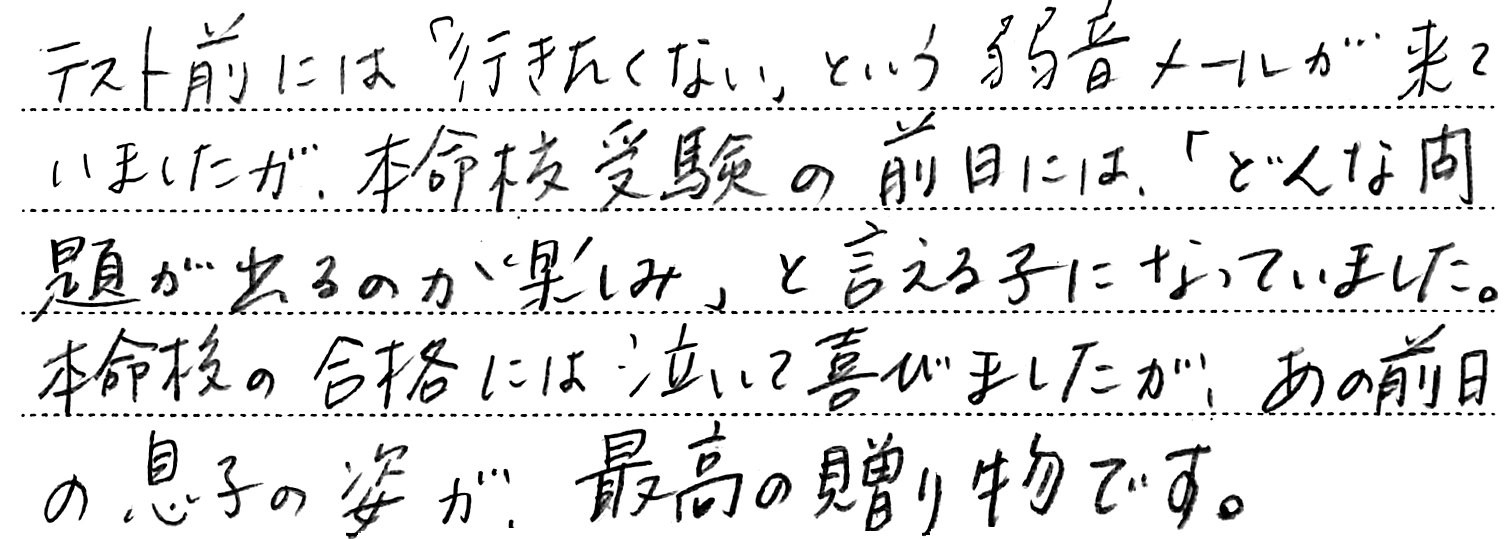 テスト前には「行きたくない」という弱音メールが来て
いましたが、本命校受験の前日には、「どんな問
題が出るのか楽しみ」と言える子になっていました。
本命校の合格には泣いて喜びましたが、あの前日
の息子の姿が、最高の贈り物です。